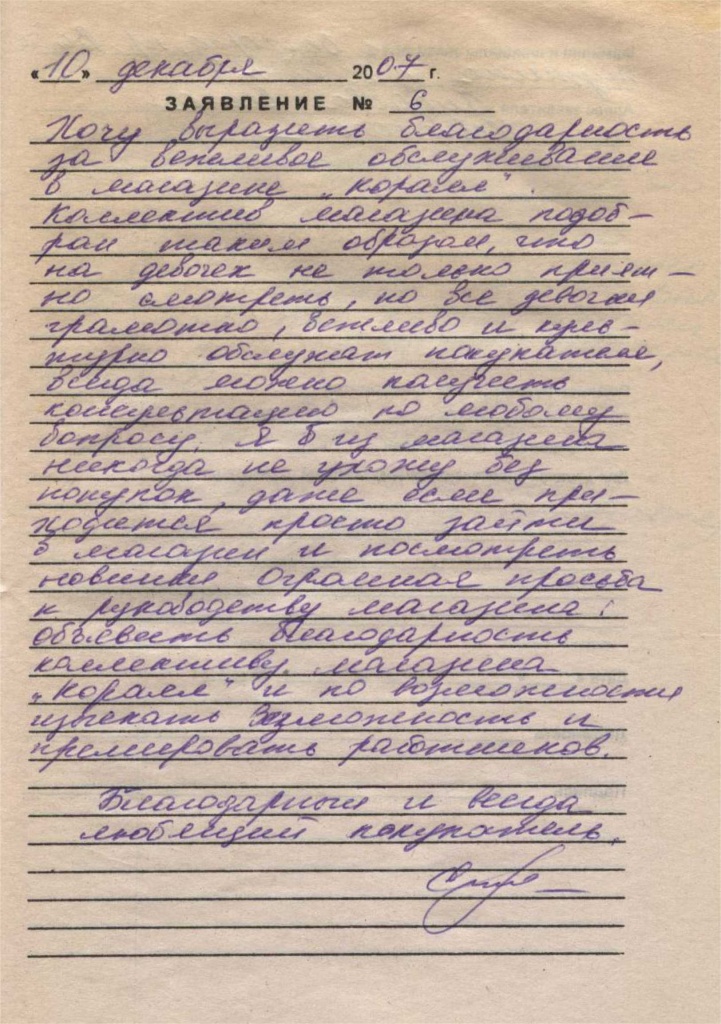 «10» декабря 2007 г.
ЗАЯВЛЕНИЕ № 6
Хочу выразить благодарность
за вежливое обслуживание
в магазине „Коралл".
Коллектив магазина подоб-
ран таким образом, что
на девочек не только прият-
но смотреть, но все девочки
грамотно, вежливо и куль-
турно обслужат покупателя,
всегда можно получить
консультацию по любому
вопросу. Я б из магазина
никогда не ухожу без
покупок, даже если при-
ходится просто зайти
в магазин и посмотреть
новинки. Огромная просьба
к руководству магазина:
объявить благодарность
коллективу магазина
„Коралл" и по возможности
изыскать возможность и
премировать работников.
Благодарный и всегда
любящий покупатель.